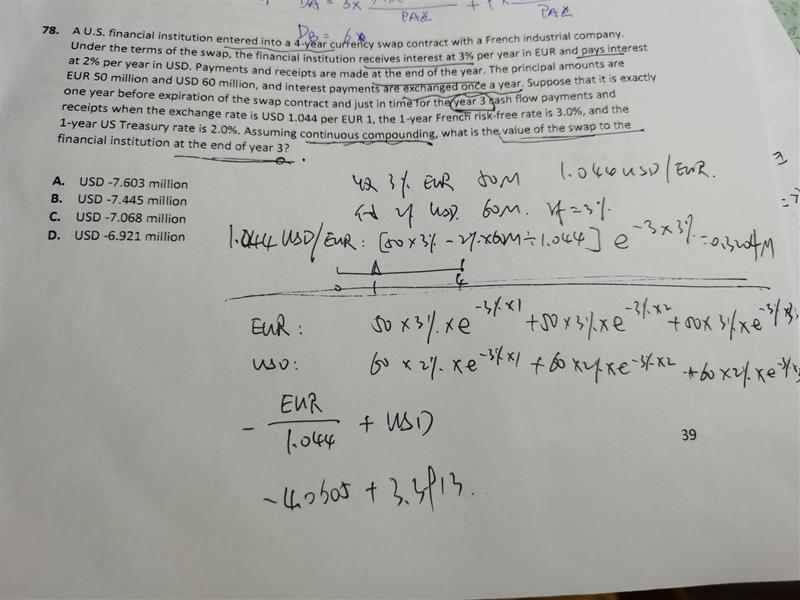 DA = 3×
PAZ
PAZ
DB = 6×
78. A U.S. financial institution entered into a 4-year currency swap contract with a French industrial company.
Under the terms of the swap, the financial institution receives interest at 3% per year in EUR and pays interest
at 2% per year in USD. Payments and receipts are made at the end of the year. The principal amounts are
EUR 50 million and USD 60 million, and interest payments are exchanged once a year. Suppose that it is exactly
one year before expiration of the swap contract and just in time for the year 3 cash flow payments and
receipts when the exchange rate is USD 1.044 per EUR 1, the 1-year French risk-free rate is 3.0%, and the
1-year US Treasury rate is 2.0%. Assuming continuous compounding, what is the value of the swap to the
financial institution at the end of year 3?
A. USD -7.603 million
B. USD -7.445 million
C. USD -7.068 million
D. USD -6.921 million
收 3% EUR 50M 1.044 USD/EUR.
付 2% USD. 60M. rf = 3%.
1.044 USD/EUR: [50×3% - 2%×60M÷1.044] e^-3×3% = 0.3204M
0 1 4
EUR: 50×3%×e^-3%×1 + 50×3%×e^-3%×2 + 50×3%×e^-3%×3
USD: 60×2%×e^-3%×1 + 60×2%×e^-3%×2 + 60×2%×e^-3%×
- EUR/1.044 + USD
-4.0605 + 3.3913.
39